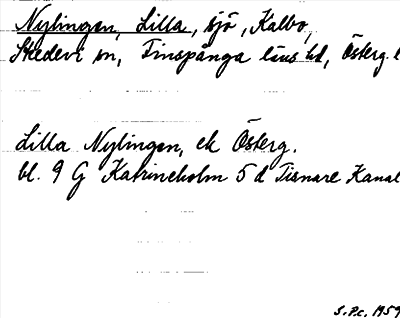 Nylingen, Lilla, sjö, Kalbo,
Skedevi sn, Finspånga läns hd, Österg. l
Lilla Nylingen, ek Österg.
bl. 9 G Katrineholm 5 d Tisnare Kanal
S.P.C. 1959